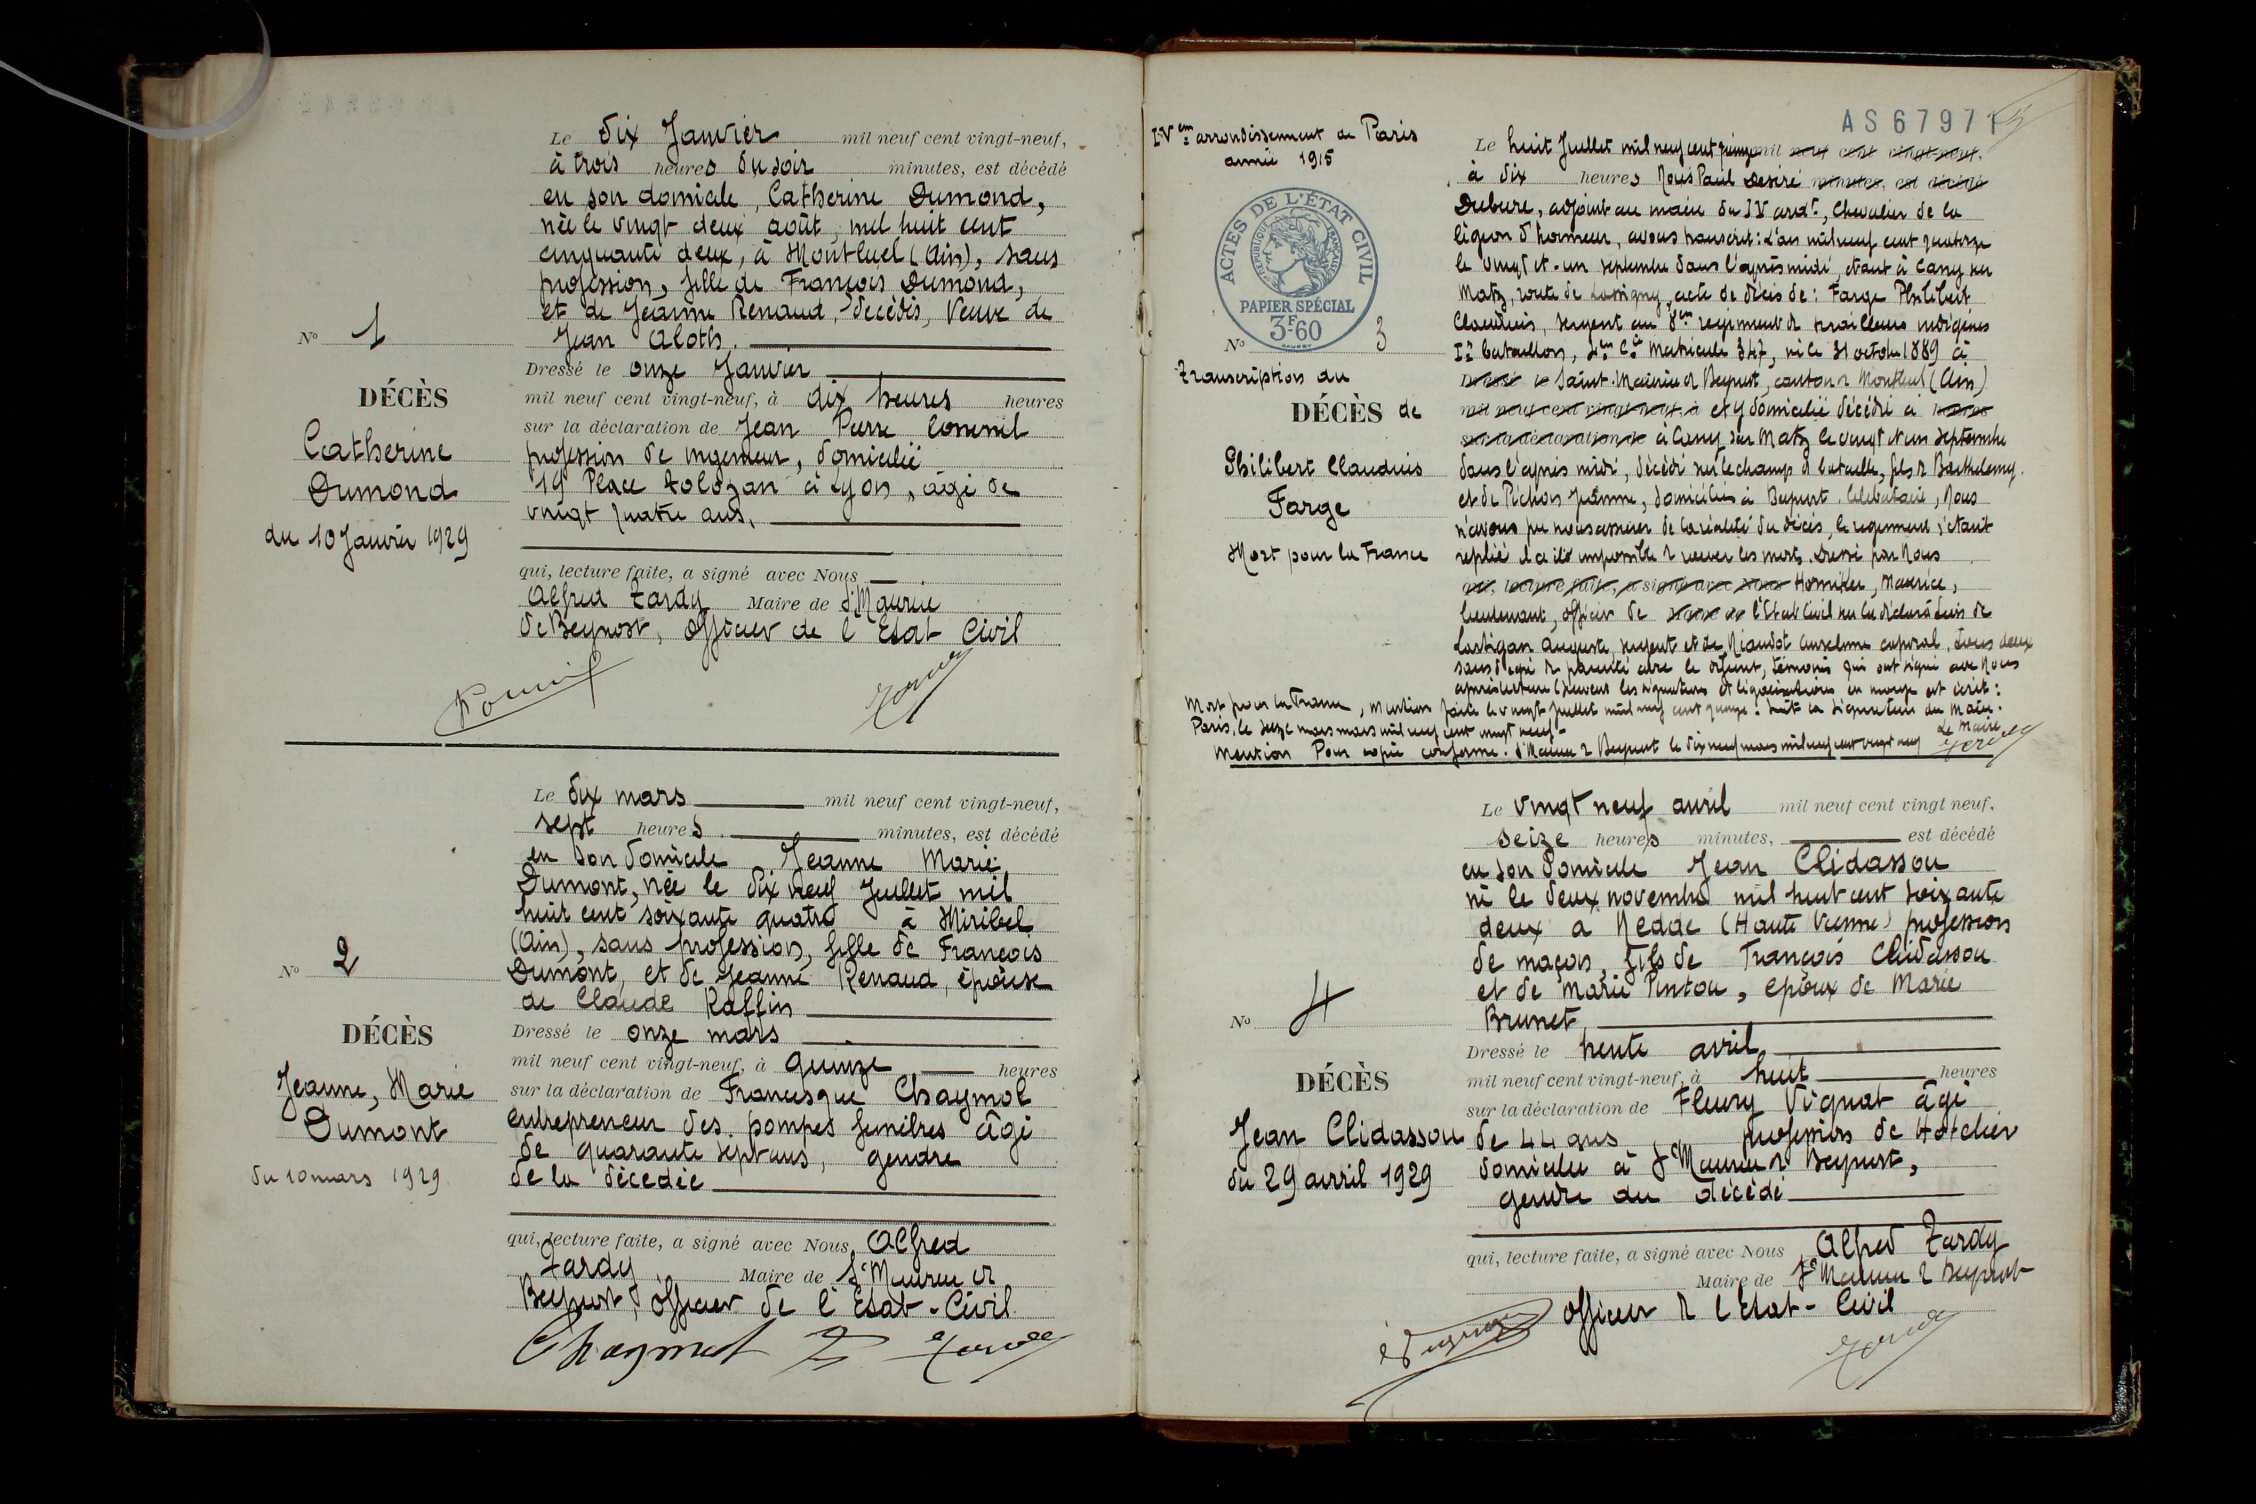 Le dix Janvier mil neuf cent vingt-neuf,
à trois heures du soir minutes, est décédé
en son domicile, Catherine Dumond,
née le vingt deux août, mil huit cent
cinquante deux, à Montluel (Ain), sans
profession, fille de François Dumond,
et de Jeanne Renaud, décédés, Veuve de
Jean Aloth.
Dressé le onze Janvier
mil neuf cent vingt-neuf, à dix heures heures
sur la déclaration de Jean Pierre
profession de ingenieur, domicilié
19 Place Tolozan à Lyon, âgé de
vingt quatre ans,
qui, lecture faite, a signé avec Nous
Alfred Tardy Maire de St Maurice
de Beynost, officier de l'Etat Civil
No 1
DÉCÈS
Catherine
Dumond
du 10 Janvier 1929
Le dix mars mil neuf cent vingt-neuf,
sept heures minutes, est décédé
en son domicile Jeanne Marie
Dumont, née le dix neuf Juillet mil
huit cent soixante quatre à Miribel
(Ain), sans profession, fille de François
Dumont, et de Jeanne Renaud, épouse
de Claude Raffin
Dressé le onze mars
mil neuf cent vingt-neuf, à quinze heures
sur la déclaration de Francisque Chaymol
entrepreneur des pompes funèbres âgé
de quarante sept ans, gendre
de la décédée
qui, lecture faite, a signé avec Nous, Alfred
Tardy Maire de St Maurice de
Beynost, officier de l'Etat-Civil
Chaymol
No 2
DÉCÈS
Jeanne, Marie
Dumont
du 10 mars 1929
AS67971
IVem arrondissement de Paris
année 1915
ACTES DE L'ÉTAT CIVIL
RÉPUBLIQUE FRANÇAISE
PAPIER SPÉCIAL
3F60
No 3
Transcription du
DÉCÈS de
Philibert Claudius
Farge
Mort pour la France
Le huit Juillet mil neuf cent quinze mil neuf cent vingt-neuf,
à dix heures Nous Paul Desiré minutes, est décédé
Dubure, adjoint au maire du IV arrdt, Chevalier de la
légion d'honneur, avons transcrit: L'an mil neuf cent quatorze
le vingt et un septembre dans l'après midi, étant à Cany sur
Matz, route de Lassigny, acte de décès de: Farge Philibert
Claudius, sergent au 8em regiment de tirailleurs indigènes
Ier bataillon, 4em Cie Matricule 347, né le 31 octobre 1889 à
Dressé le Saint-Maurice de Beynost, canton de Montluel (Ain)
mil neuf cent vingt-neuf, à et y domicilié décédé à heures
sur la déclaration de à Cany sur Matz le vingt et un septembre
dans l'après midi, décédé sur le champ de bataille, fils de Barthelemy
et de Pichon Jeanne, domiciliés à Beynost. Célibataire, Nous
n'avons pu nous assurer de la réalité du décès, le regiment s'étant
replié il a été impossible de relever les morts. Dressé par Nous
qui, lecture faite, a signé avec Nous Horniker, Maurice,
lieutenant, officier de Maire de l'Etat Civil sur la déclaration de
Lartigan Auguste, sergent et de Niaudot Anselme caporal, tous deux
sans degré de parenté avec le défunt, témoins qui ont signé avec Nous
après lecture (suivent les signatures et légalisations en marge est écrit:
Mort pour la France, mention faite le vingt Juillet mil neuf cent quinze: Suit la signature du Maire.
Paris, le seize mars mil neuf cent vingt neuf.
Le Maire
Mention Pour copie conforme. St Maurice de Beynost le dix neuf mars mil neuf cent vingt neuf
Le vingt neuf avril mil neuf cent vingt neuf,
seize heures minutes, est décédé
en son domicile Jean Clidassou
né le deux novembre mil huit cent soixante
deux à Nedde (Haute Vienne) profession
de maçon, fils de François Clidassou
et de Marie Pintou, époux de Marie
Brunet
Dressé le trente avril
mil neuf cent vingt-neuf, à huit heures
sur la déclaration de Fleury Vignat âgé
de 44 ans profession de Hotelier
domicilié à St Maurice de Beynost,
gendre du décédé
qui, lecture faite, a signé avec Nous, Alfred Tardy
Maire de St Maurice de Beynost
officier de l'Etat-Civil
No 4
DÉCÈS
Jean Clidassou
du 29 avril 1929